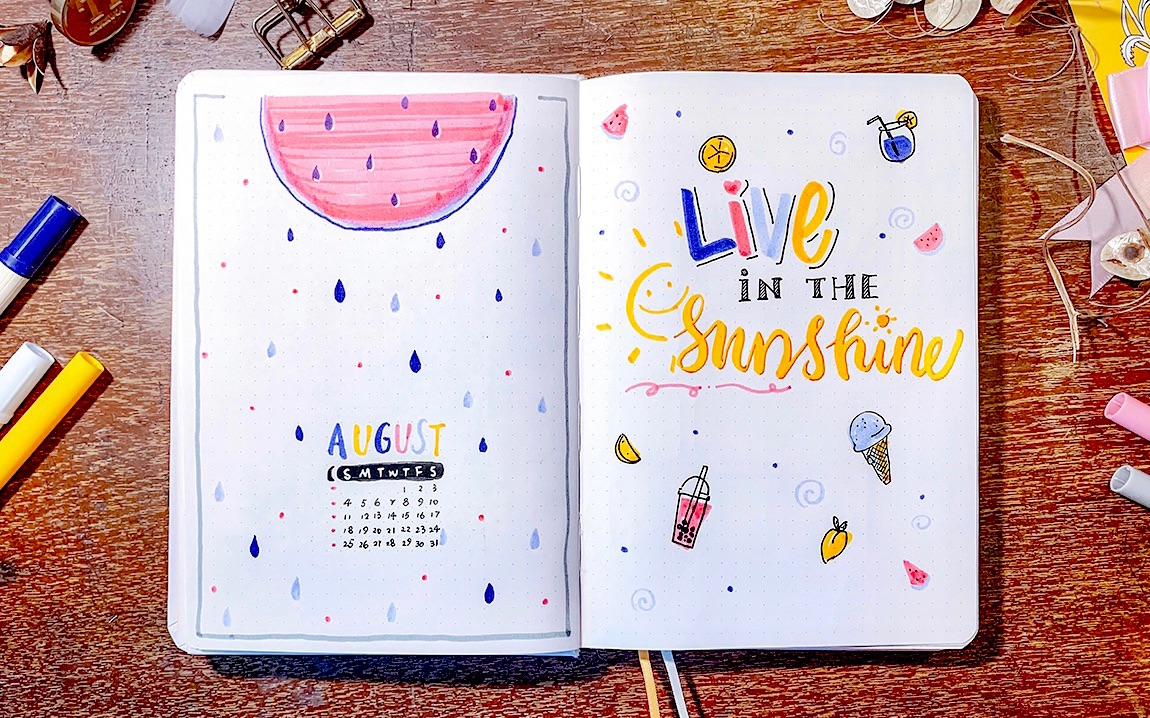 AUGUST
S M T W T F S
1 2 3
4 5 6 7 8 9 10
11 12 13 14 15 16 17
18 19 20 21 22 23 24
25 26 27 28 29 30 31
LiVe
iN THE
Sunshine